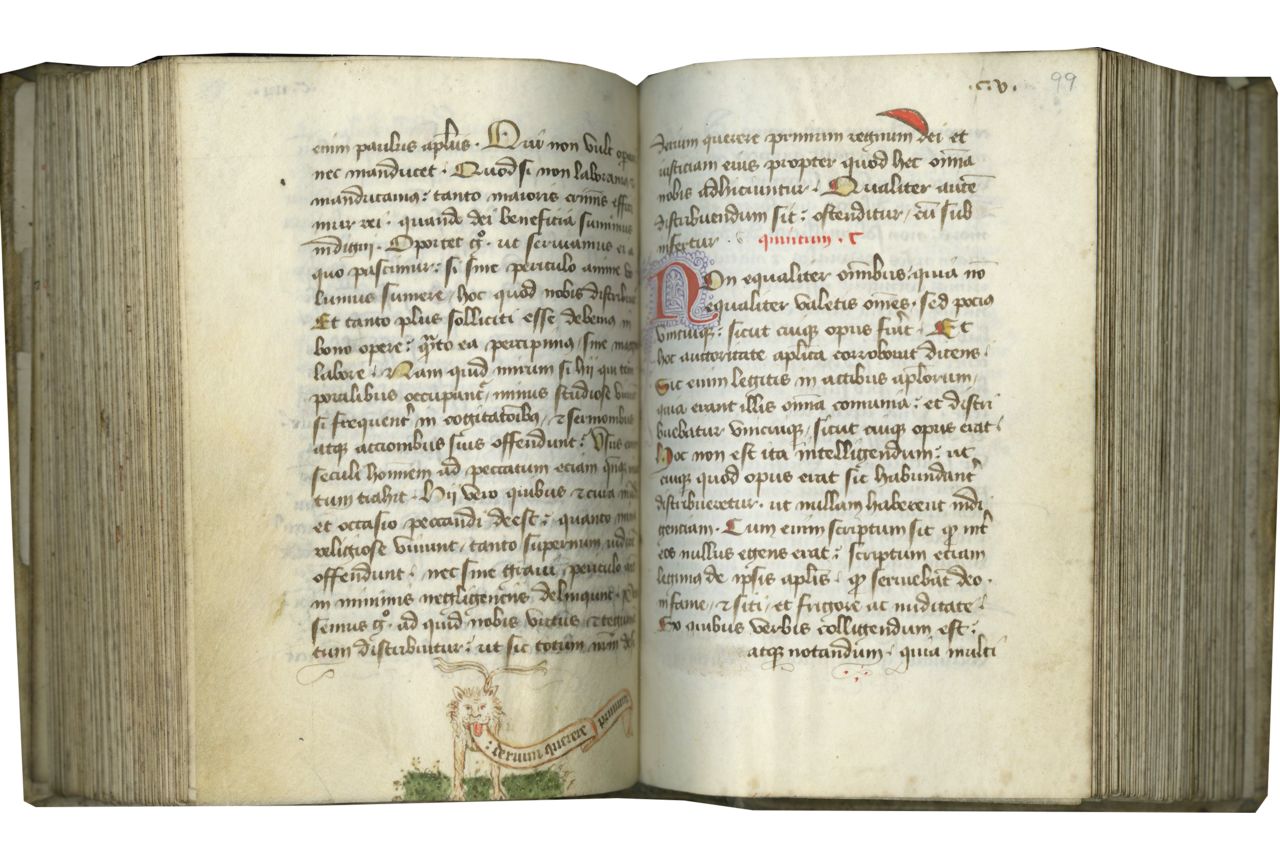 enim paulus apl̄us · Qui non vult
nec manducet · Quod si non
manducamus : tanto maioris criminis
mur rei · quando dei beneficia sumimus
indigni · Oportet g° · ut seruiamus ei a
quo pascimur : si sine periculo anime
lumus sumere / hoc quod nobis
Et tanto plus solliciti esse debemus in
bono opere : q̄nto ea percipimus / sine
labore · Nam quid mirum si hii qui
poralibus occupant᷑ / minus studiose
si frequent᷑ in cogitatōibꝫ / ⁊ sermonibus
atqꝫ accionibus suis offendunt : Usus
seculi hominem ad peccatum eciam
tum trahit · Hii vero quibus ⁊ cura
et occasio peccandi deest : quanto
religiose viuunt / tanto supernum
offendunt · nec sine graui periculo
in minimis negligenciis delinqunt ·
semus g° · ad quid nobis victus / ⁊
tum distribuitur : ut sic totum nr̄m
: terium querere primum
·c·v· 99
derium querere primum regnum dei et
iusticiam eius propter quod hec om̄ia
nobis adhiciuntur · Qualiter autē
distribuendum sit : ostenditur / cū sub
infertur · quintum ·
Non equaliter om̄ibus / quia nō
equaliter valetis om̄es · sed pocius
vnicuiqꝫ : sicut cuiqꝫ opus fu̾it · Et
hoc autoritate aplica corroborat dicens ·
Sic enim legitis in actibus apl̄orum /
quia erant illis om̄ia comunia : et distri
buebatur vnicuiqꝫ / sicut cuiqꝫ opus erat ·
Hoc non est ita intelligendum : ut
cuiqꝫ quod opus erat sic habundant᷑
distribueretur · ut nullam haberent indi
genciam · Cum enim scriptum sit qꝫ int᷑
eos nullus egens erat : scriptum eciam
legimus de ipsis apl̄is · qꝫ seruiebāt deo ·
in fame / ⁊ siti / et frigore ac nuditate ·
Ex quibus verbis colligendum est :
atqꝫ notandum · quia multi